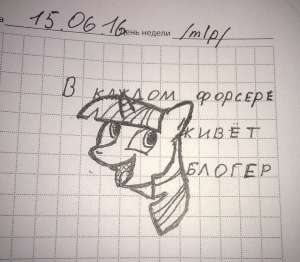 15.06.16 День недели /mlp/
В КАЖДОМ ФОРСЕРЕ
ЖИВЁТ
БЛОГЕР